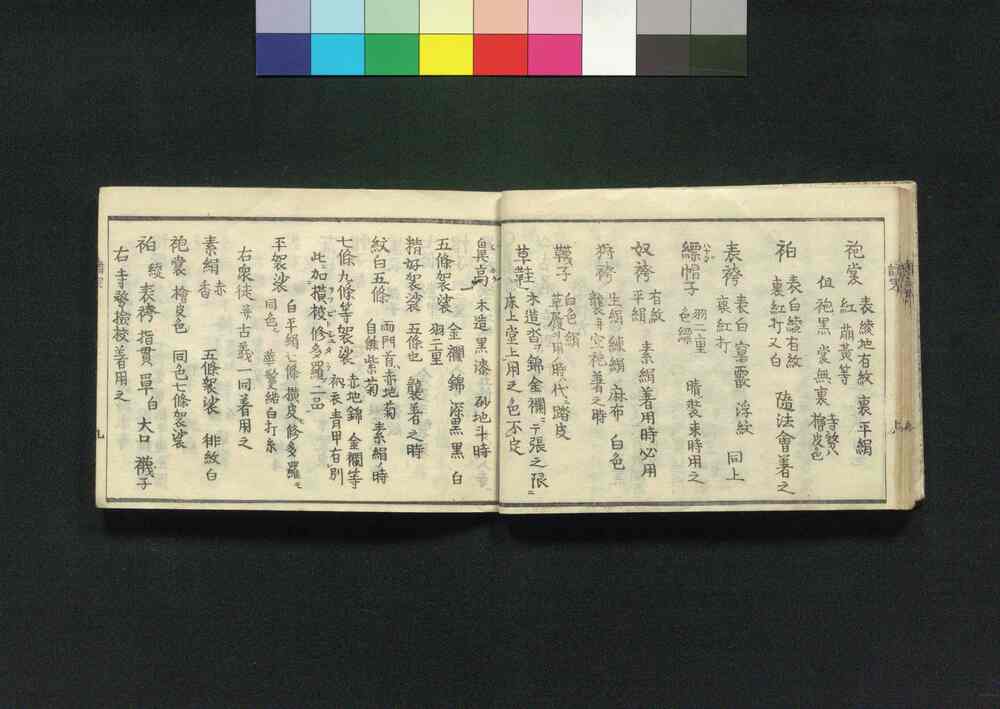 袍裳 表綾地有紋 裏平絹
紅 萠黃等
但 袍黒 裳無裏 寺務ハ檜皮色
袙 表白綾有紋 隨法會着之
裏紅打又白
表袴 表白窠霰 浮紋 同上
裏紅打
縹帽子 羽二重 晴裝束時用之
色縹
奴袴 有紋 素絹着用時必用
平絹
狩袴 生絹 練絹 麻布 白色
袍着之時
襪子 白色絹
時代ハ踏皮
草鞋 木造沓ヲ錦金襴ニテ張之限ニ
床上堂上用之 色不定
鼻高 木造黒漆 砂地斗時
五條袈裟 金襴 錦 深黒 黒 白
羽二重
精好袈裟 五條也 襲着之時
紋白五條 兩門首ハ赤地菊 素絹ノ時
自餘紫菊
七條九條等袈裟 赤地錦 金襴等
衲衣 青甲 右ノ別
此ニ加橫被修多羅二品
平袈裟 白平絹 七條 橫皮 修多羅モ
同色 白打糸
右衆徒 古義一同着用之
素絹 赤 五條袈裟 緋紋白
香
袍裳 檜皮色 同色七條袈裟
袙 綾 表袴 指貫 單白 大口 襪子
右寺務撿挍着用之
九